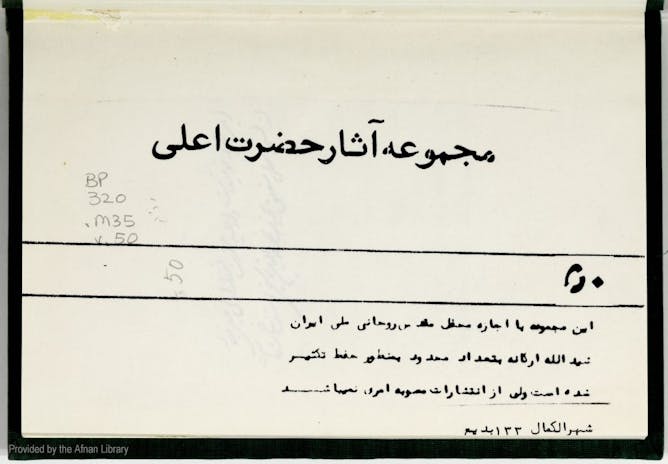 مجموعه آثار حضرت اعلی
BP
320
.M35
v.50
50
۵۰
این مجموعه با اجازه محفل مقدس روحانی ملی ایران
شید الله ارکانه بتعداد محدود بمنظور حفظ تکثیر
شده است ولی از انتشارات مصوبه امری نمیباشد
شهرالکمال ۱۳۳ بدیع
Provided by the Afnan Library